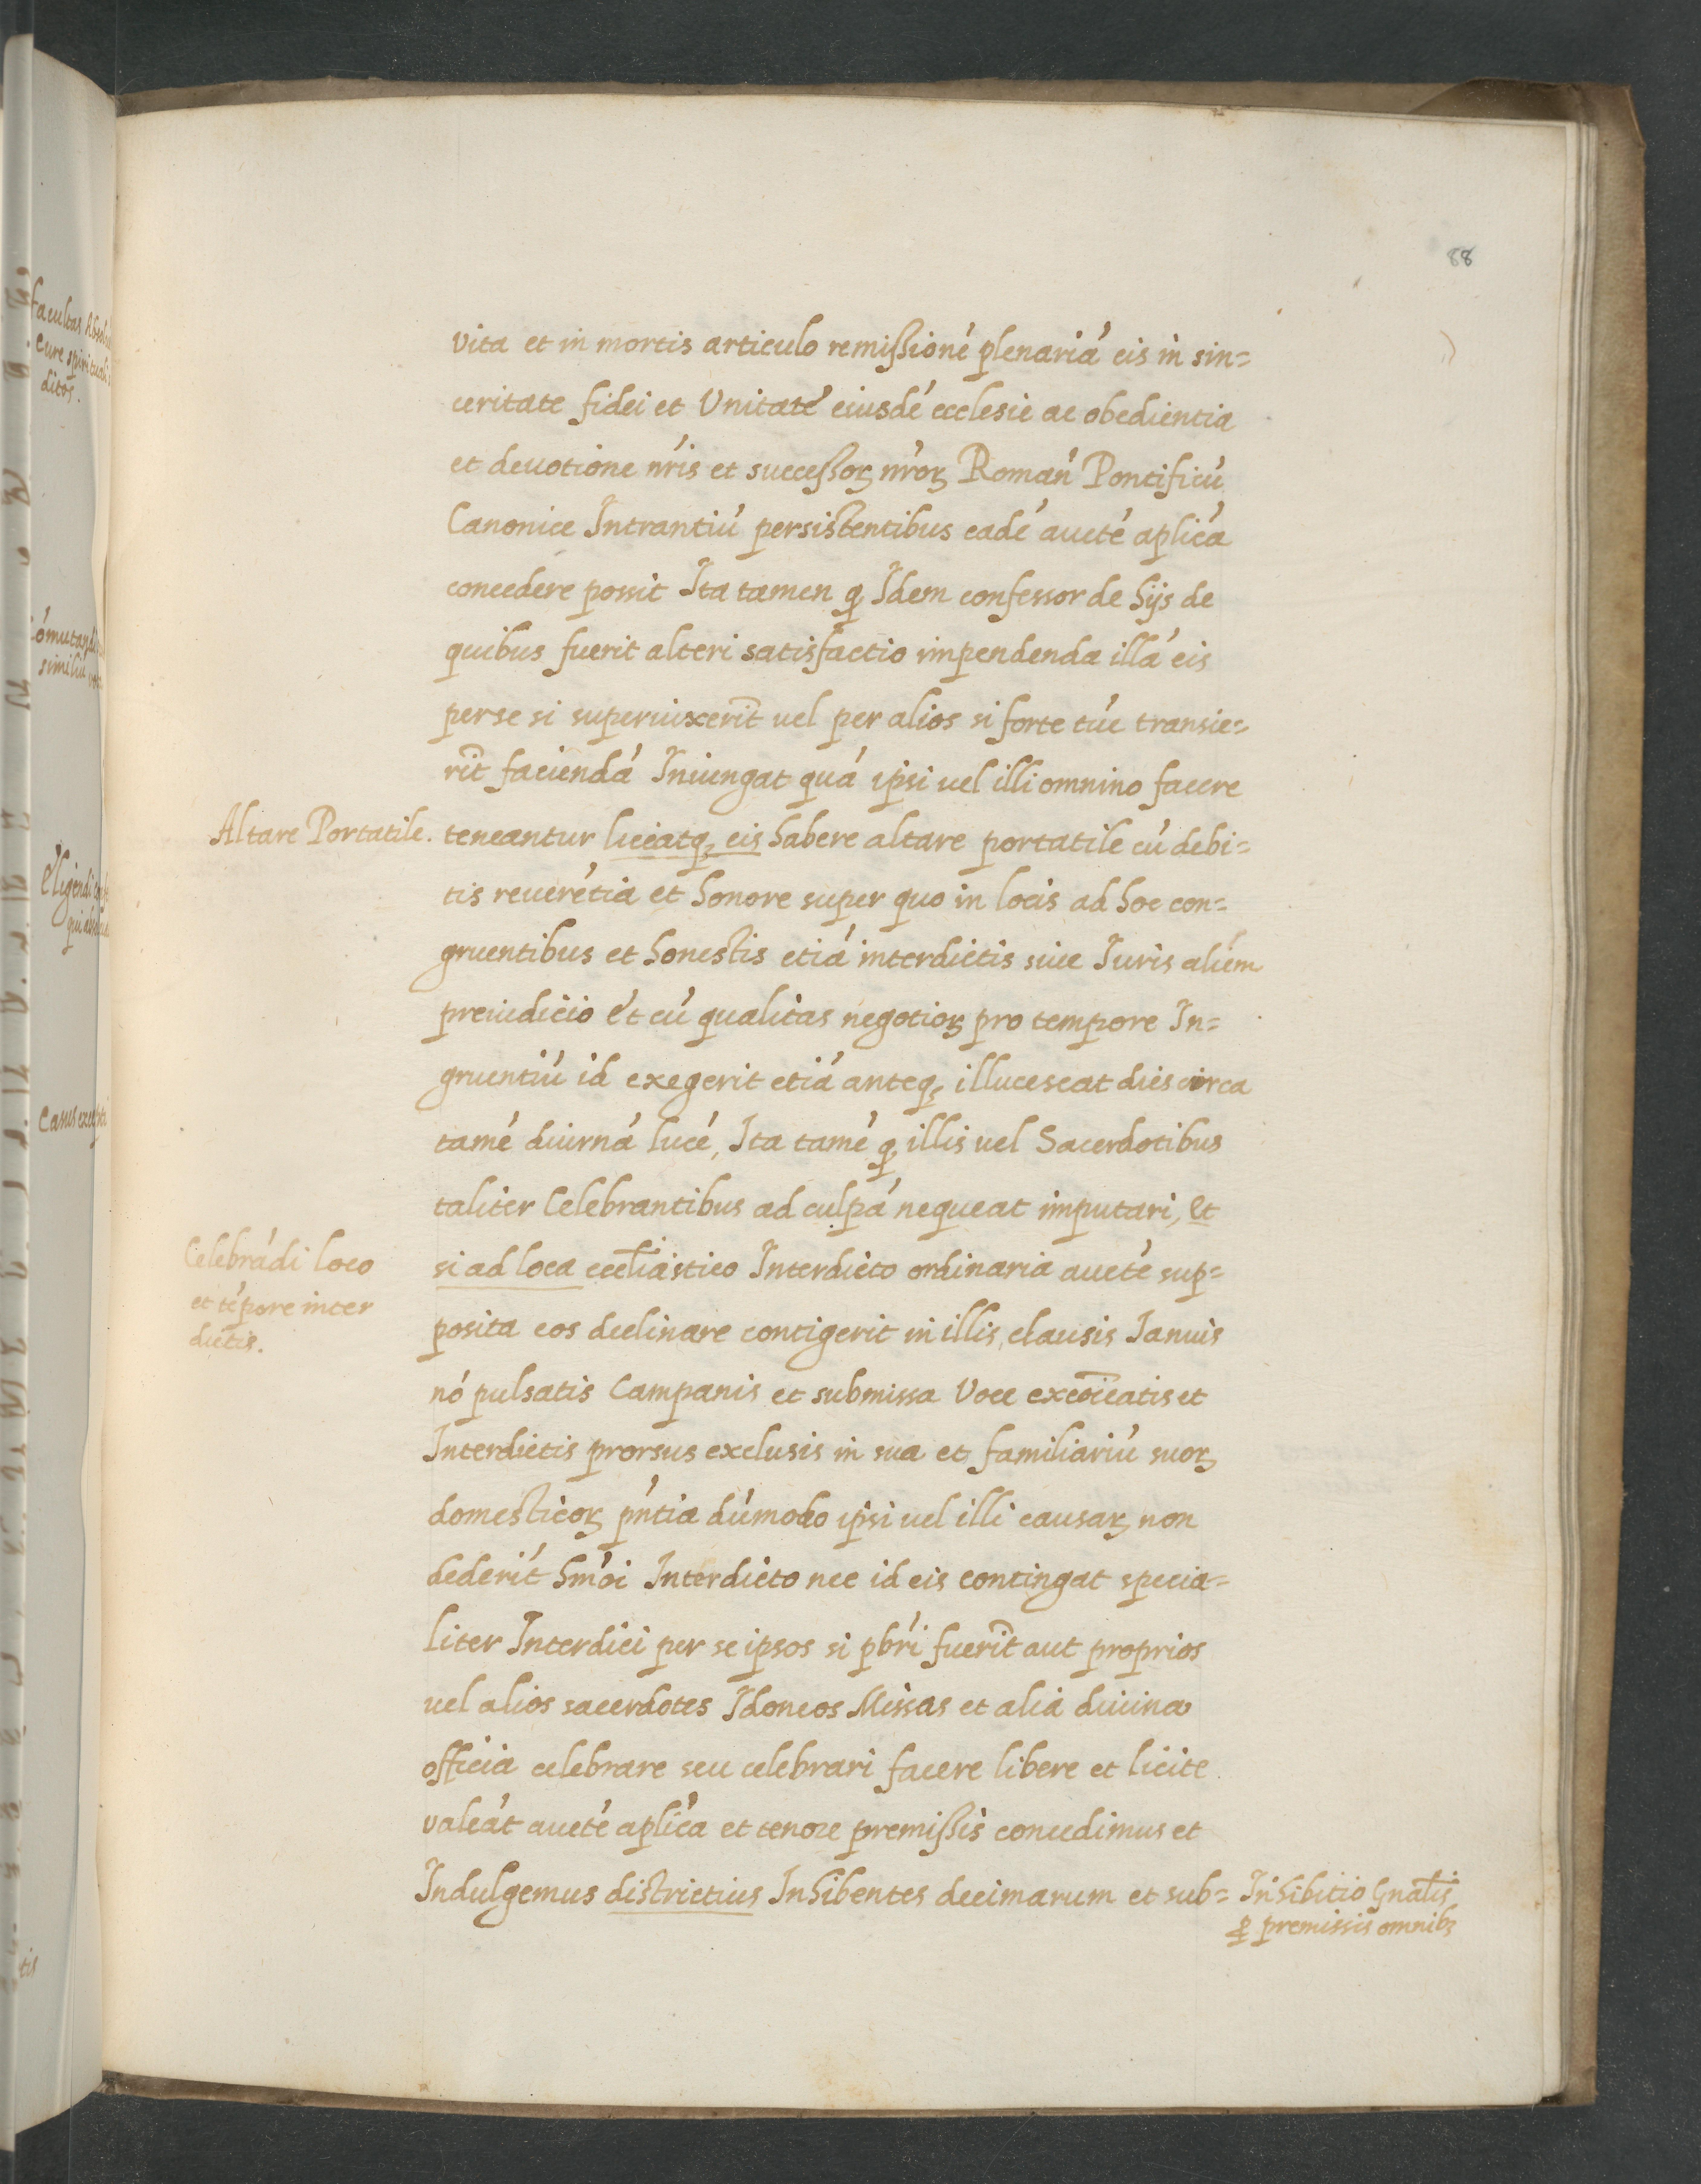 88
vita et in mortis articulo remißioné plenariá eis in sin=
ceritate fidei et Vnitaté eiusdé ecclesie ac obedientia
et deuotione nr̃is et succeßoꝝ nr̃oꝝ Romañ Pontificú
Canonice Intrantiú persistentibus eadé aucté aplic̃a
concedere possit Ita tamen ꝙ Idem confessor de hijs de
quibus fuerit alteri satisfactio impendenda illá eis
per se si superuixerĩt uel per alios si forte tũc transie=
rĩt faciendá Iniungat quá ipsi uel illi omnino facere
Altare Portatile.
teneantur liceatq; eis habere altare portatile cú debi=
tis reuerẽtia et honore super quo in locis ad hoc con=
gruentibus et honestis etiá interdictis siue Iuris alieñ
preiudicio Et cú qualitas negotioꝝ pro tempore In=
gruentiú id exegerit etiá anteq; illucescat dies circa
tamé diurná lucé, Ita tamé ꝙ illis uel Sacerdotibus
taliter Celebrantibus ad culpá nequeat imputari, et
Celebrádi loco
et tépore inter
dictis.
si ad loca eccl̃iastico Interdicto ordinaria aucté sup=
posita eos declinare contigerit in illis, clausis Ianuis
nó pulsatis Campanis et submissa Voce excõicatis et
Interdictis prorsus exclusis in sua et familiariú suoꝝ
domesticoꝝ pñtia dúmodo ipsi uel illi causaꝝ non
dederĩt hm̃oi Interdicto nec id eis contingat specia=
liter Interdici per se ipsos si pbr̃i fuerĩt aut proprios
uel alios sacerdotes Idoneos Missas et alia diuina
officia celebrare seu celebrari facere libere et licite
valeát aucté aplic̃a et tenore premißis concedimus et
Indulgemus districtius Inhibentes decimarum et sub=
Inhibitio Gnal̃is
ꝓ premissis omnibꝫ
Facultas
Cure spirituali
dicos.
similiũ
Eligendi
Casus excepti